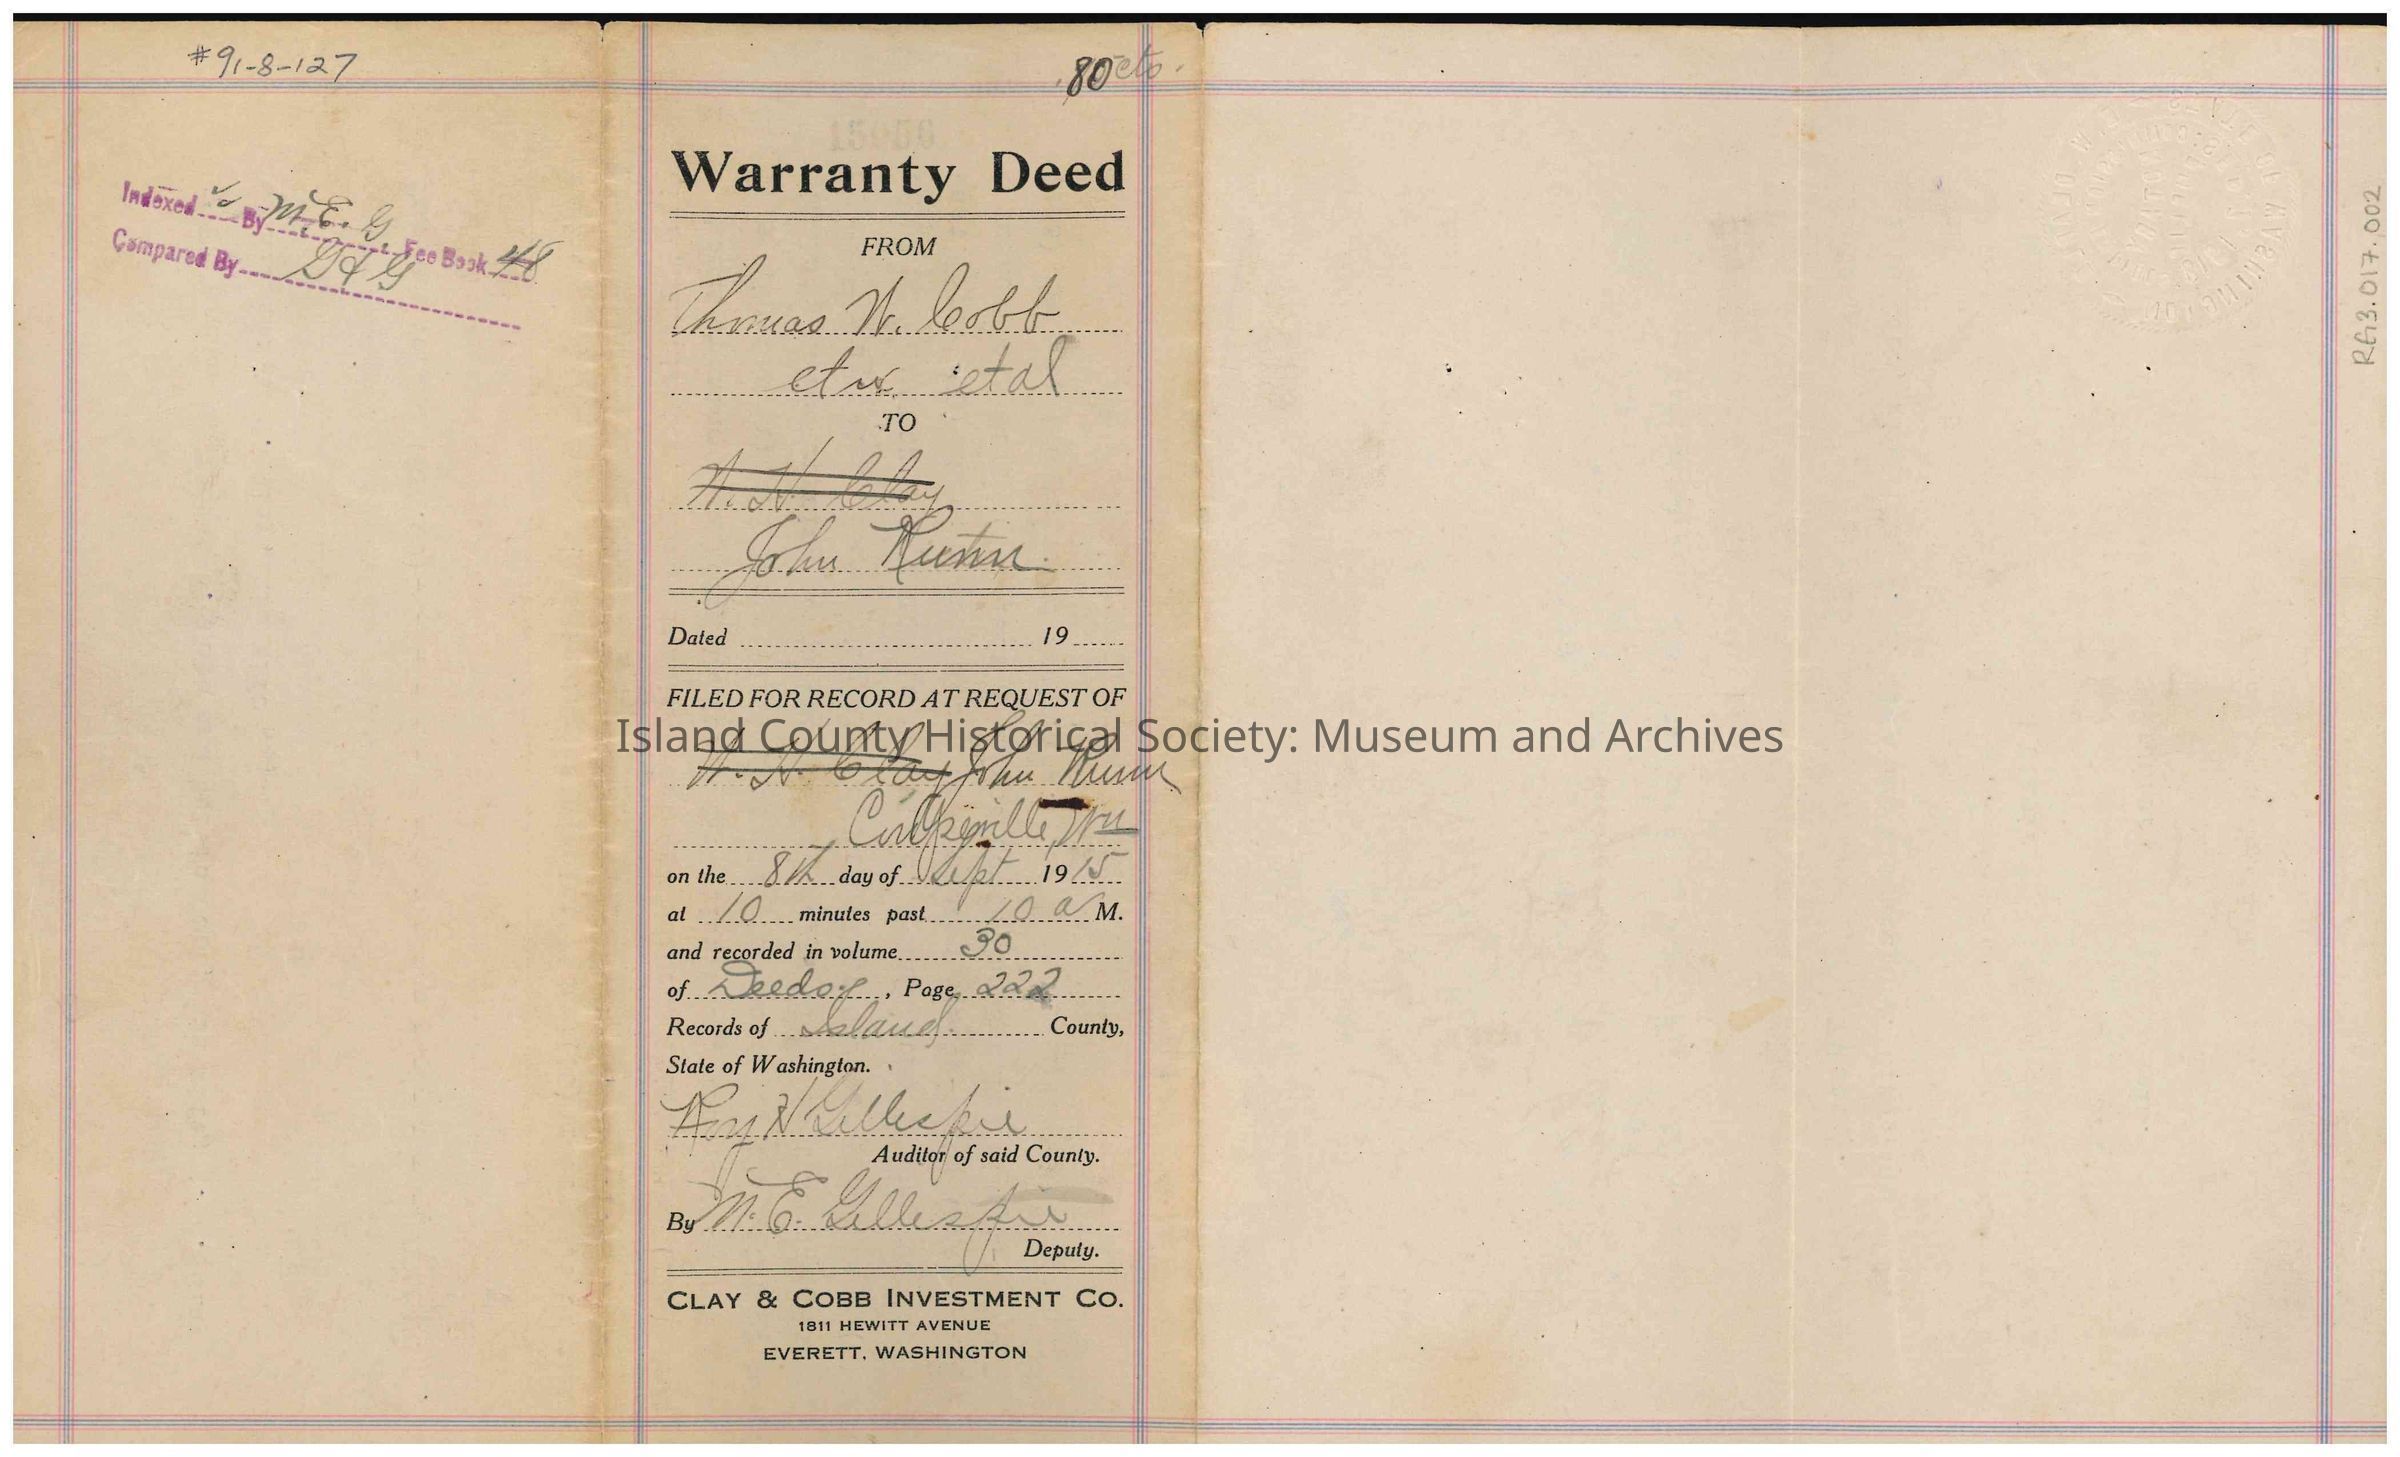 #91-8-127
80 cts.
Warranty Deed
Indexed By M. E. G. Fee Book 48
Compared By
FROM
Thomas W. Cobb
et ux. et al
TO
W. H. Clay
John
Dated 19
FILED FOR RECORD AT REQUEST OF
Island County Historical Society: Museum and Archives
W. H. Clay John
Coupeville, Wn
on the 8th day of Sept 1915
at 10 minutes past 10 a M.
and recorded in volume 30
of Deeds, Page 222
Records of Island County,
State of Washington.
Roy H Gillespie
Auditor of said County.
By M. E. Gillespie
Deputy.
CLAY & COBB INVESTMENT CO.
1811 HEWITT AVENUE
EVERETT, WASHINGTON
RG3.017.002